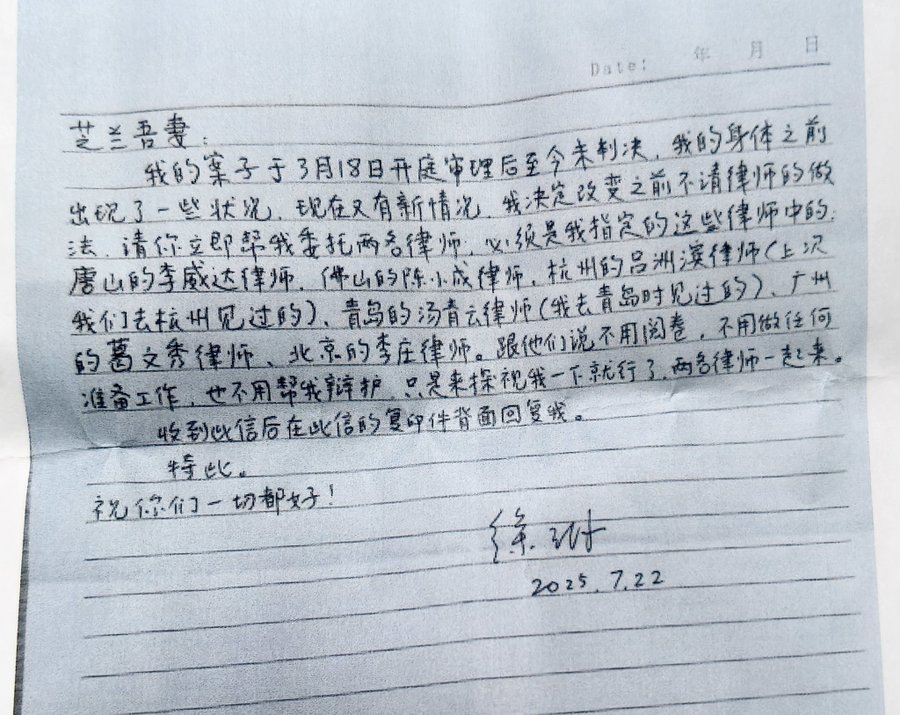 Date: 年 月 日
芝兰吾妻:
我的案子于3月18日开庭审理后至今未判决,我的身体之前
出现了一些状况,现在又有新情况,我决定改变之前不请律师的做
法,请你立即帮我委托两名律师,必须是我指定的这些律师中的:
唐山的李威达律师、佛山的陈小成律师、杭州的吕洲滨律师(上次
我们去杭州见过的)、青岛的汤青云律师(我去青岛时见过的)、广州
的葛文秀律师、北京的李庄律师。跟他们说不用阅卷,不用做任何
准备工作,也不用帮我辩护,只是来探视我一下就行了,两名律师一起来。
收到此信后在此信的复印件背面回复我。
特此。
祝你们一切都好!
徐
2025.7.22